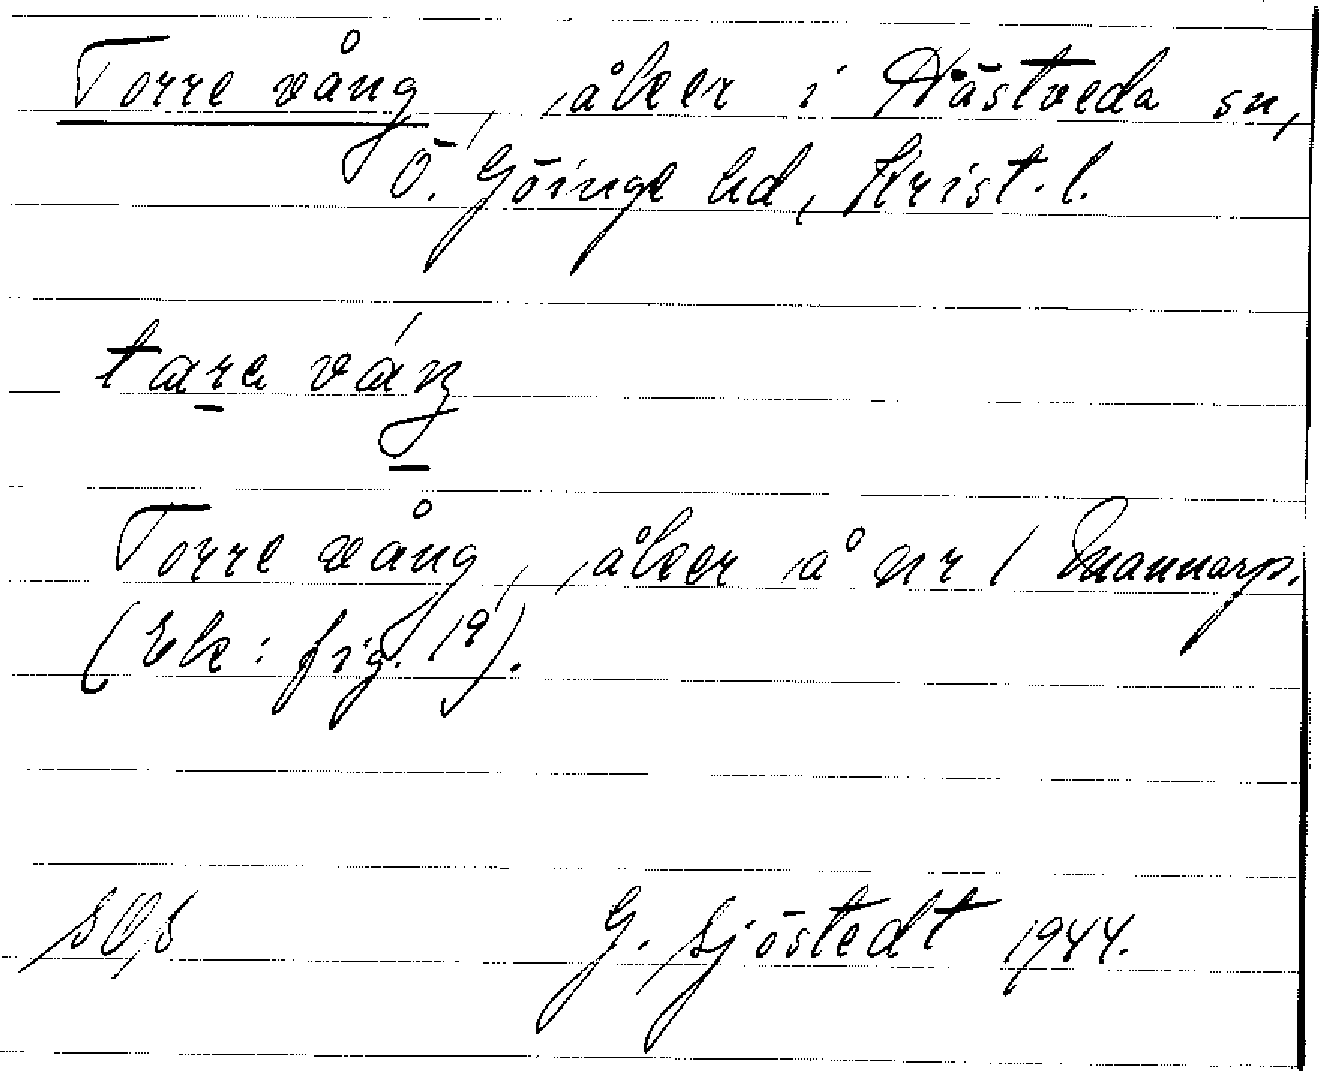 Torre vång, åker i Hästveda sn,
Ö. Göinge hd, Krist. l.
Torre vång, åker å nr 1 Mannarp.
(Ek: fig. 19).
G. Sjöstedt 1944.